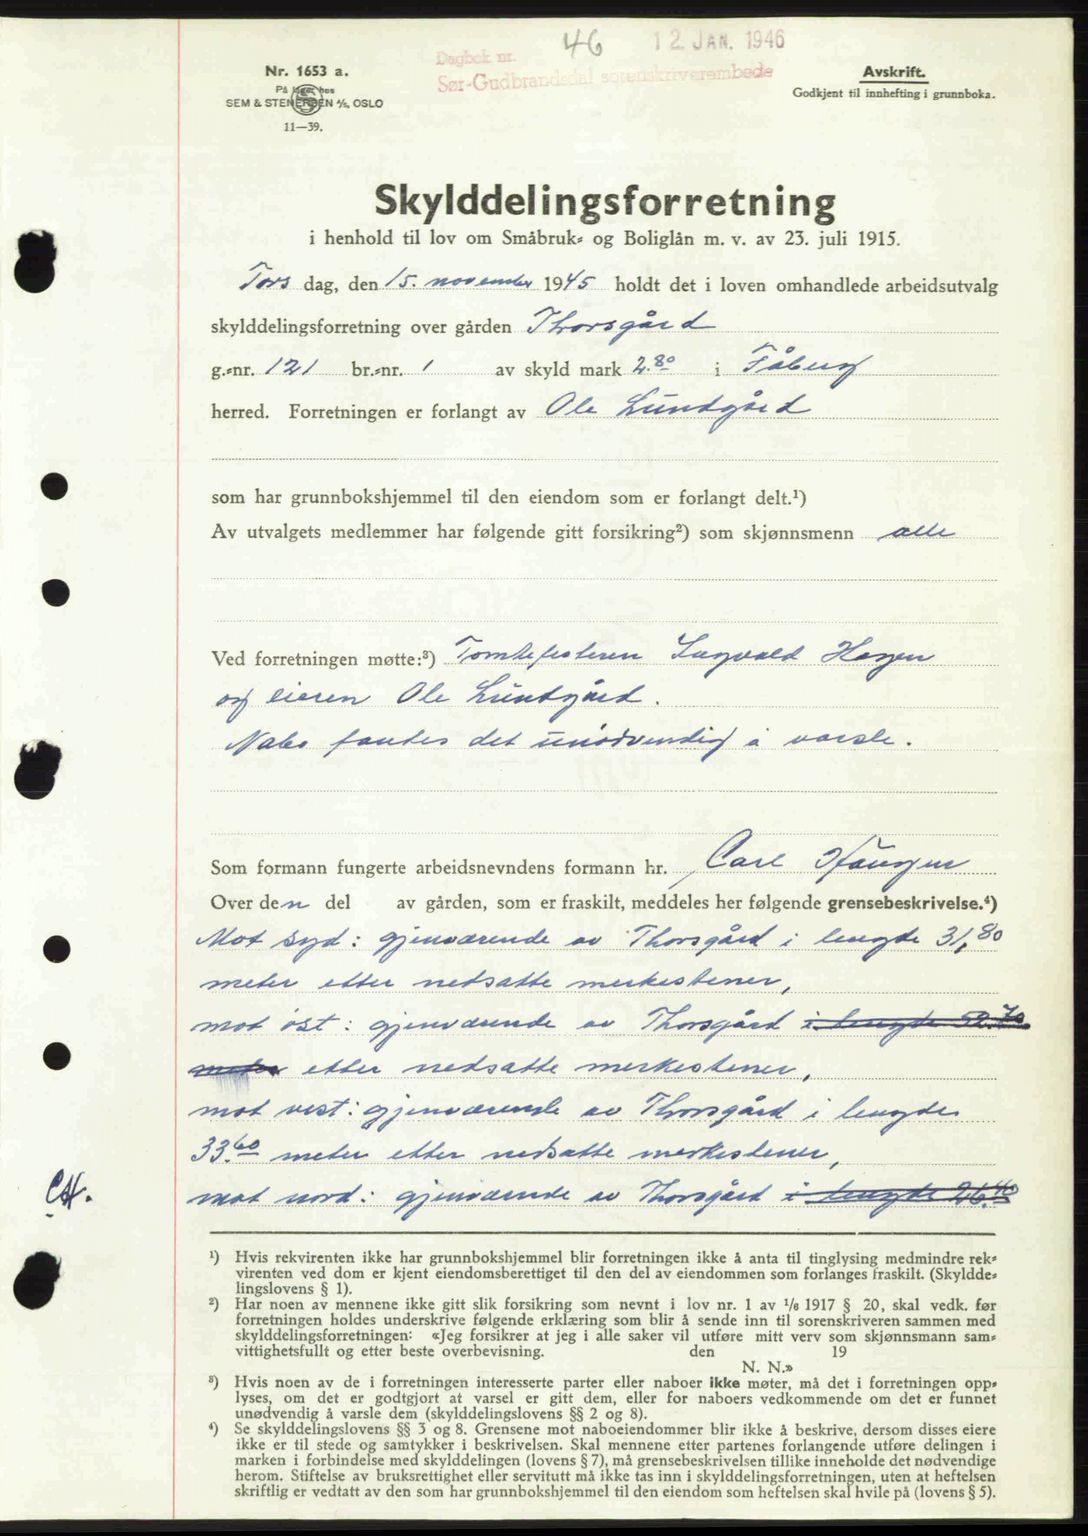 46
12. JAN. 1946
Dagbok nr.
Sør-Gudbrandsdal sorenskriverembede
Nr. 1653 a.
På lager hes
SEM & STENERSEN A/S, OSLO
11—39.
Avskrift.
Godkjent til innhefting i grunnboka.
Skylddelingsforretning
i henhold til lov om Småbruk- og Boliglån m. v. av 23. juli 1915.
Tors dag, den 15. november 1945 holdt det i loven omhandlede arbeidsutvalg
skylddelingsforretning over gården Thorsgård
g.-nr. 121 br.-nr. 1 av skyld mark 2.80 i Fåberg
herred. Forretningen er forlangt av Ole Lundgård
som har grunnbokshjemmel til den eiendom som er forlangt delt.¹)
Av utvalgets medlemmer har følgende gitt forsikring²) som skjønnsmenn alle
Ved forretningen møtte:³) Tomtefesteren Ingvald Hagen
og eieren Ole Lundgård.
Nabo fantes det unødvendig å varsle.
Som formann fungerte arbeidsnevndens formann hr. Carl Haugen
Over den del av gården, som er fraskilt, meddeles her følgende grensebeskrivelse.⁴)
Mot syd: gjenværende av Thorsgård i lengde 31,80
meter etter nedsatte merkestener,
mot øst: gjenværende av Thorsgård i lengde 52.70
meter etter nedsatte merkestener,
mot vest: gjenværende av Thorsgård i lengde
33.60 meter etter nedsatte merkestener,
CH.
mot nord: gjenværende av Thorsgård i lengde 26.40
¹) Hvis rekvirenten ikke har grunnbokshjemmel blir forretningen ikke å anta til tinglysing medmindre rek-
virenten ved dom er kjent eiendomsberettiget til den del av eiendommen som forlanges fraskilt. (Skyldde-
lingslovens § 1).
²) Har noen av mennene ikke gitt slik forsikring som nevnt i lov nr. 1 av 1/6 1917 § 20, skal vedk. før
forretningen holdes underskrive følgende erklæring som blir å sende inn til sorenskriveren sammen med
skylddelingsforretningen: «Jeg forsikrer at jeg i alle saker vil utføre mitt verv som skjønnsmann sam-
vittighetsfullt og etter beste overbevisning. den 19
N. N.»
³) Hvis noen av de i forretningen interesserte parter eller naboer ikke møter, må det i forretningen opp-
lyses, om det er godtgjort at varsel er gitt dem, eller for naboers vedkommende om det er funnet
unødvendig å varsle dem (skylddelingslovens §§ 2 og 8).
⁴) Se skylddelingslovens §§ 3 og 8. Grensene mot naboeiendommer blir ikke å beskrive, dersom disses eiere
ikke er til stede og samtykker i beskrivelsen. Skal mennene etter partenes forlangende utføre delingen i
marken i forbindelse med skylddelingen (lovens § 7), må grensebeskrivelsen tillike inneholde det nødvendige
herom. Stiftelse av bruksrettighet eller servitutt må ikke tas inn i skylddelingsforretningen, uten at heftelsen
skriftlig er vedtatt av den som har grunnbokshjemmel til den eiendom som heftelsen skal hvile på (lovens § 5).